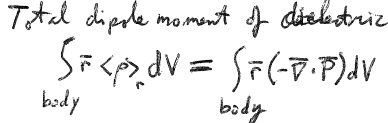 Total dipole moment of dielectric
∫ r̄ <ρ>ᵣ dV = ∫ r̄ (-∇̄·P̄) dV
body body